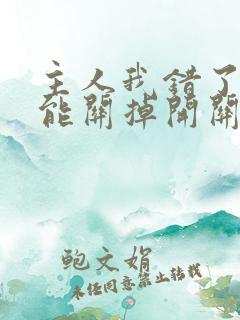 主人我错了
能關掉開關
鲍文娟
未经同意禁止转载